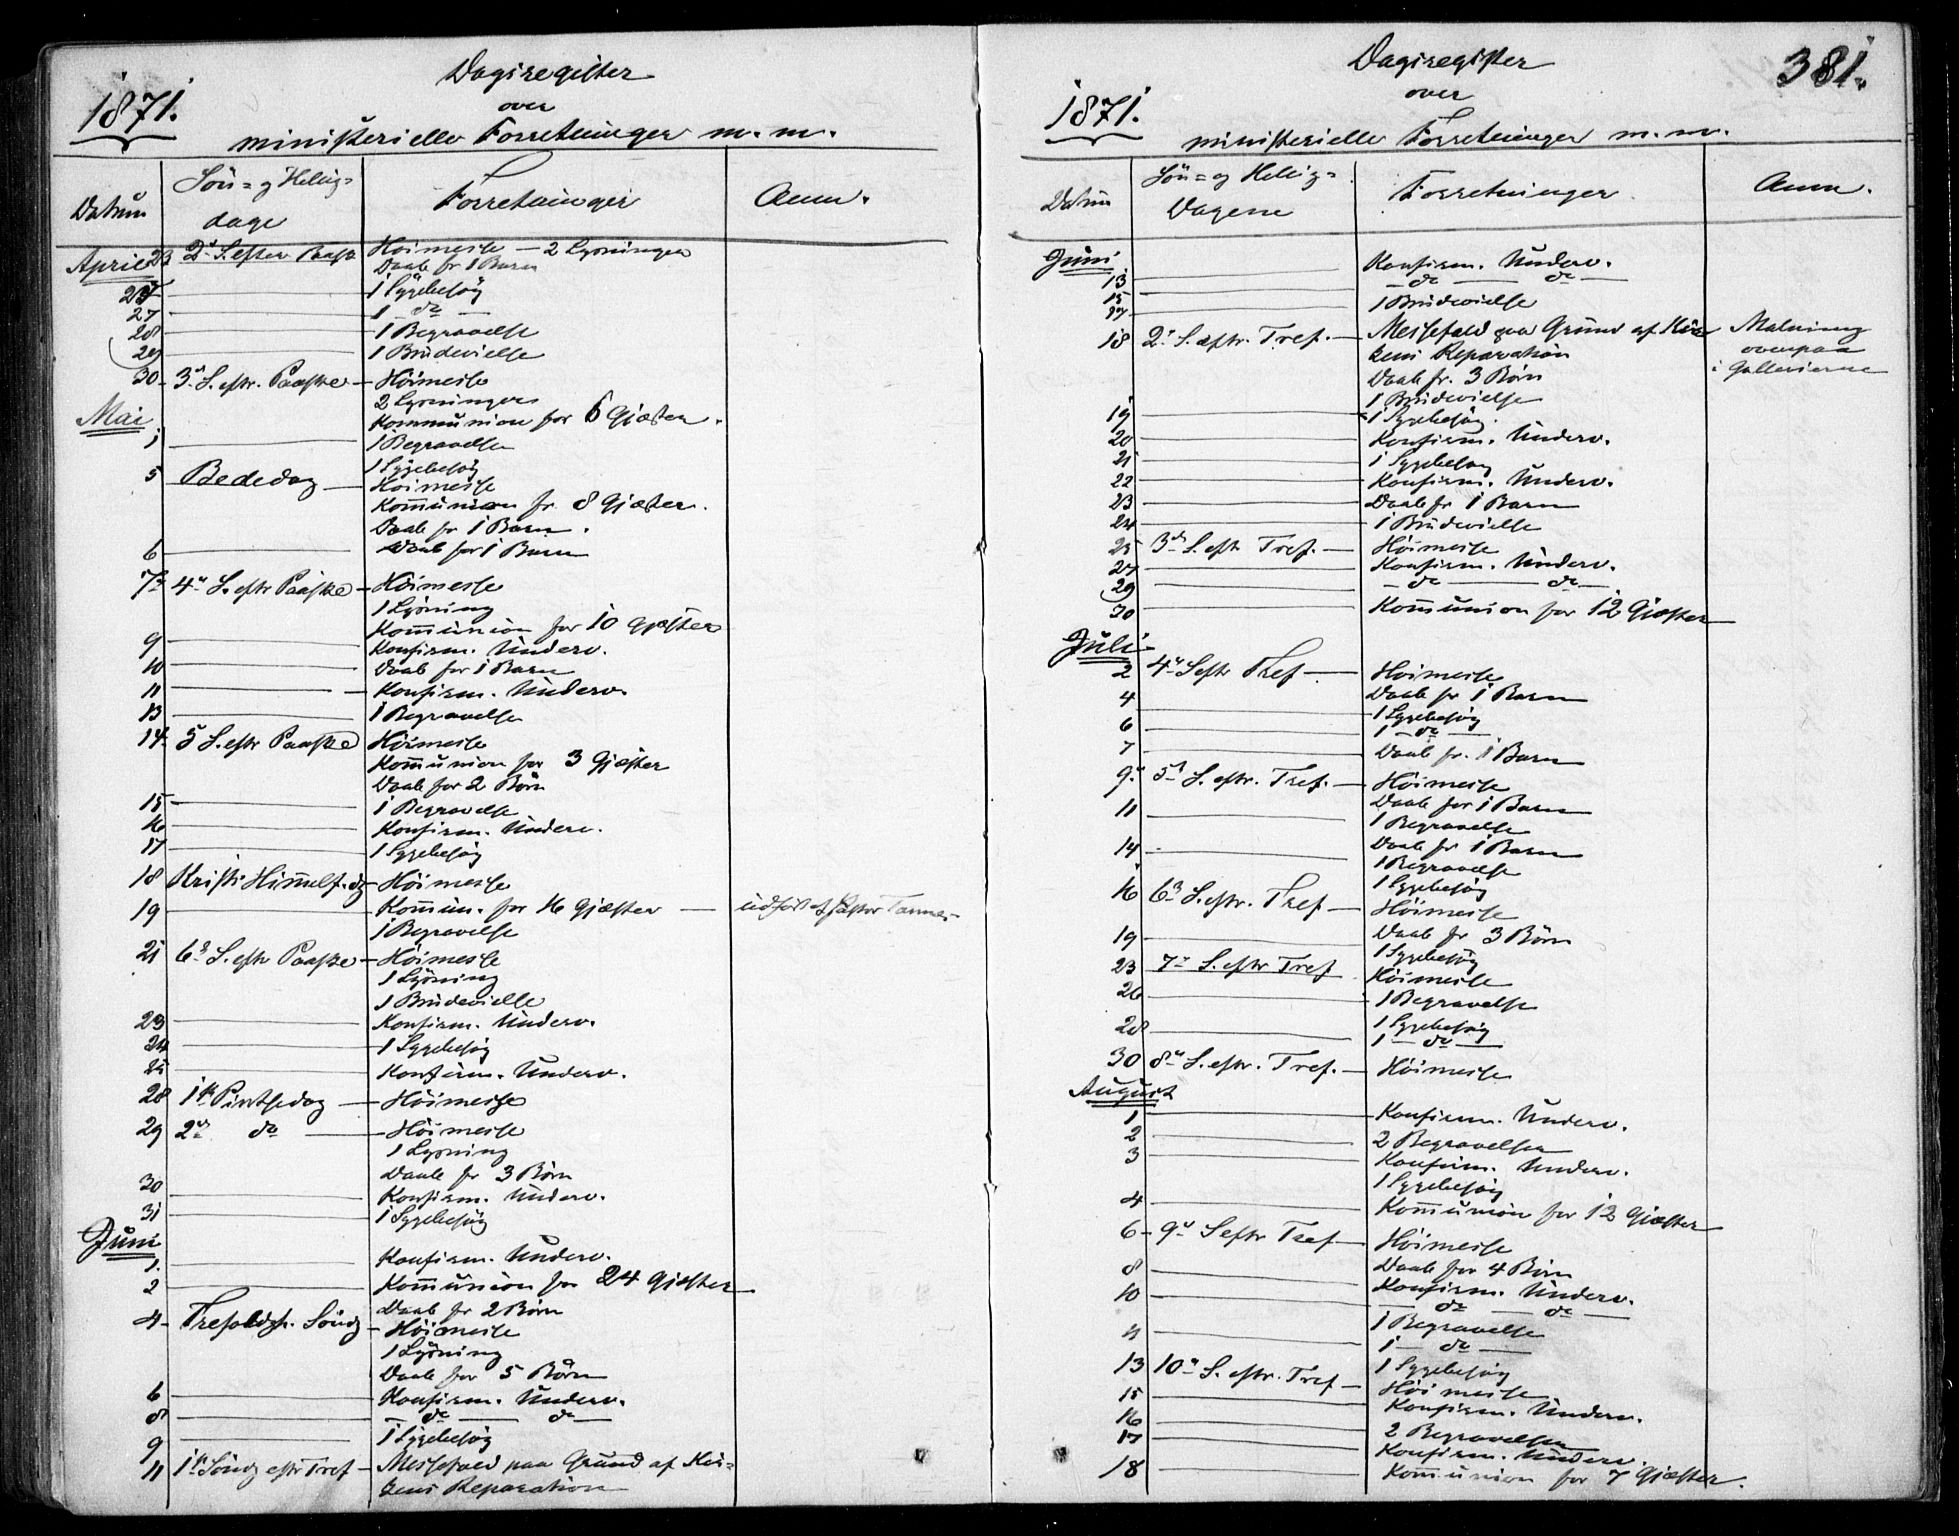 1871.
Dagsregister
over
ministerielle Forretninger m. m.
Datum
Søn- og Hellig-
dage
Forretninger
Anm.
April 23 2den S. efter Paaske Höimesse — 2 Lysninger
Daab for 1 Barn
1 Sygebesög
27 1 do
28 1 Begravelse
29 1 Brudevielse
30 3die S. eftr. Paaske Höimesse
2 Lysninger
Kommunion for 6 Gjæster.
Mai
1 1 Begravelse
1 Sygebesög
5 Bededag Höimesse
Kommunion fr. 8 Gjæster.
Daab for 1 Barn.
6 Daab for 1 Barn
7de 4de S. eftr Paaske Höimesse
1 Lysning
Kommunion for 10 Gjæster
9 Konfirm. Underv.
10 Daab for 1 Barn
11 Konfirm. Underv.
13 1 Begravelse
14 5 S. eftr Paaske Höimesse
Kommunion for 3 Gjæster
Daab for 2 Börn
15 1 Begravelse
16 Konfirm. Underv.
17 1 Sygebesög
18 Kristi Himmelf. dg Höimesse
19 Kommun. for 16 Gjæster — udfört af Pastor
1 Begravelse
21 6te S. eftr Paaske Höimesse
1 Lysning
1 Brudevielse
23 Konfirm. Underv.
24 1 Sygebesög
25 Konfirm. Underv.
28 1ste Pintsedag Höimesse
29 2den do Höimesse
1 Lysning
Daab fr 3 Börn
30 Konfirm. Underv.
31 1 Sygebesög
Juni
1. Konfirm. Underv.
2 Kommunion for 24 Gjæster
Daab fr 2 Börn
4 Trefoldgh. Söndg Höimesse
1 Lysning
Daab for 5 Börn
6 Konfirm. Underv.
8 do do
9 1 Sygebesög
11 1ste Söndg eftr Tref Messefald paa Grund af Kir-
kens Reparation
1871.
Dagsregister
over
ministerielle Forretninger m. m.
381.
Datum
Sön- og Hellig-
Dagene
Forretninger
Anm.
Juni
13 Konfirm. Underv.
15 do do
17 1 Brudevielse
18 2den S. eftr. Tref. Messefald paa Grund af Kir- Malning
kens Reparation ovenpaa
i Gallerierne
Daab fr. 3 Börn
1 Brudevielse
19 1 Sygebesög.
20 Konfirm. Underv.
21 1 Sygebesög
22 Konfirm. Underv.
23 Daab fr 1 Barn
24 1 Brudevielse
25 3die S. eft Tref. Höimesse
27 Konfirm. Underv.
29 do do
30 Kommunion for 12 Gjæster
Juli
2 4de S eftr Tref Höimesse
4 Daab fr 1 Barn
1 Sygebesög
6 1 do
7 Daab fr. 1 Barn
9. 5te S. eftr. Tref. Höimesse
11 Daab for 1 Barn
1 Begravelse
14 Daab fr 1 Barn
1 Begravelse
1 Sygebesög
16 6te S. eftr. Tref Höimesse
19 Daab fr 3 Börn
1 Sygebesög
23 7de S. eftr Tref Höimesse
26 1 Begravelse
28 1 Sygebesög
1 do
30 8de S. eftr. Tref. Höimesse
August
1 Konfirm. Underv.
2 2 Begravelser
3 Konfirm. Underv.
1 Sygebesög
4 Kommunion for 12 Gjæster
6 9de S eftr Tref Höimesse
Daab for 4 Börn
8 Konfirm. Underv.
10 do do
1 Begravelse
11 1 do
1 Sygebesög
13 10de S. eftr. Tref Höimesse
15 Konfirm. Underv.
16 2 Begravelser
17 Konfirm. Underv.
18 Kommunion for 7 Gjæster.